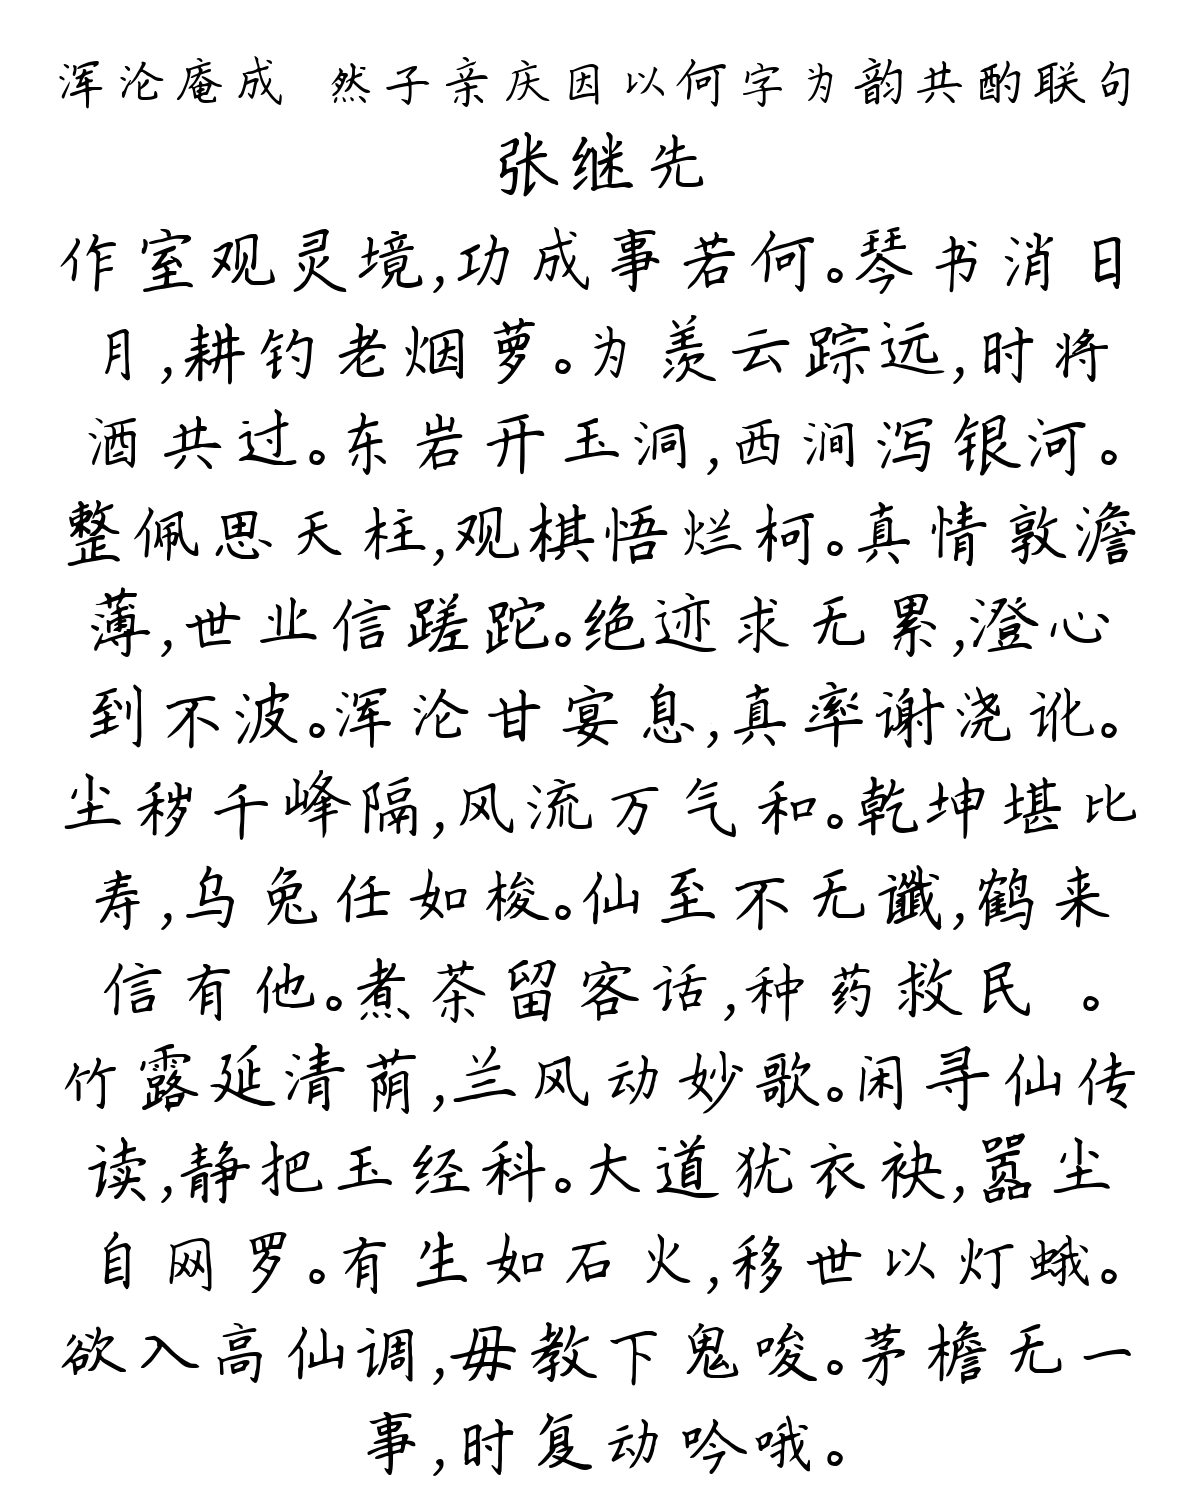 浑沦庵成 然子亲庆因以何字为韵共酌联句
张继先
作室观灵境,功成事若何。琴书消日
月,耕钓老烟萝。为羡云踪远,时将
酒共过。东岩开玉洞,西涧泻银河。
整佩思天柱,观棋悟烂柯。真情敦澹
薄,世业信蹉跎。绝迹求无累,澄心
到不波。浑沦甘宴息,真率谢浇讹。
尘秽千峰隔,风流万气和。乾坤堪比
寿,乌兔任如梭。仙至不无谶,鹤来
信有他。煮茶留客话,种药救民 。
竹露延清荫,兰风动妙歌。闲寻仙传
读,静把玉经科。大道犹衣袂,嚣尘
自网罗。有生如石火,移世以灯蛾。
欲入高仙调,毋教下鬼唆。茅檐无一
事,时复动吟哦。